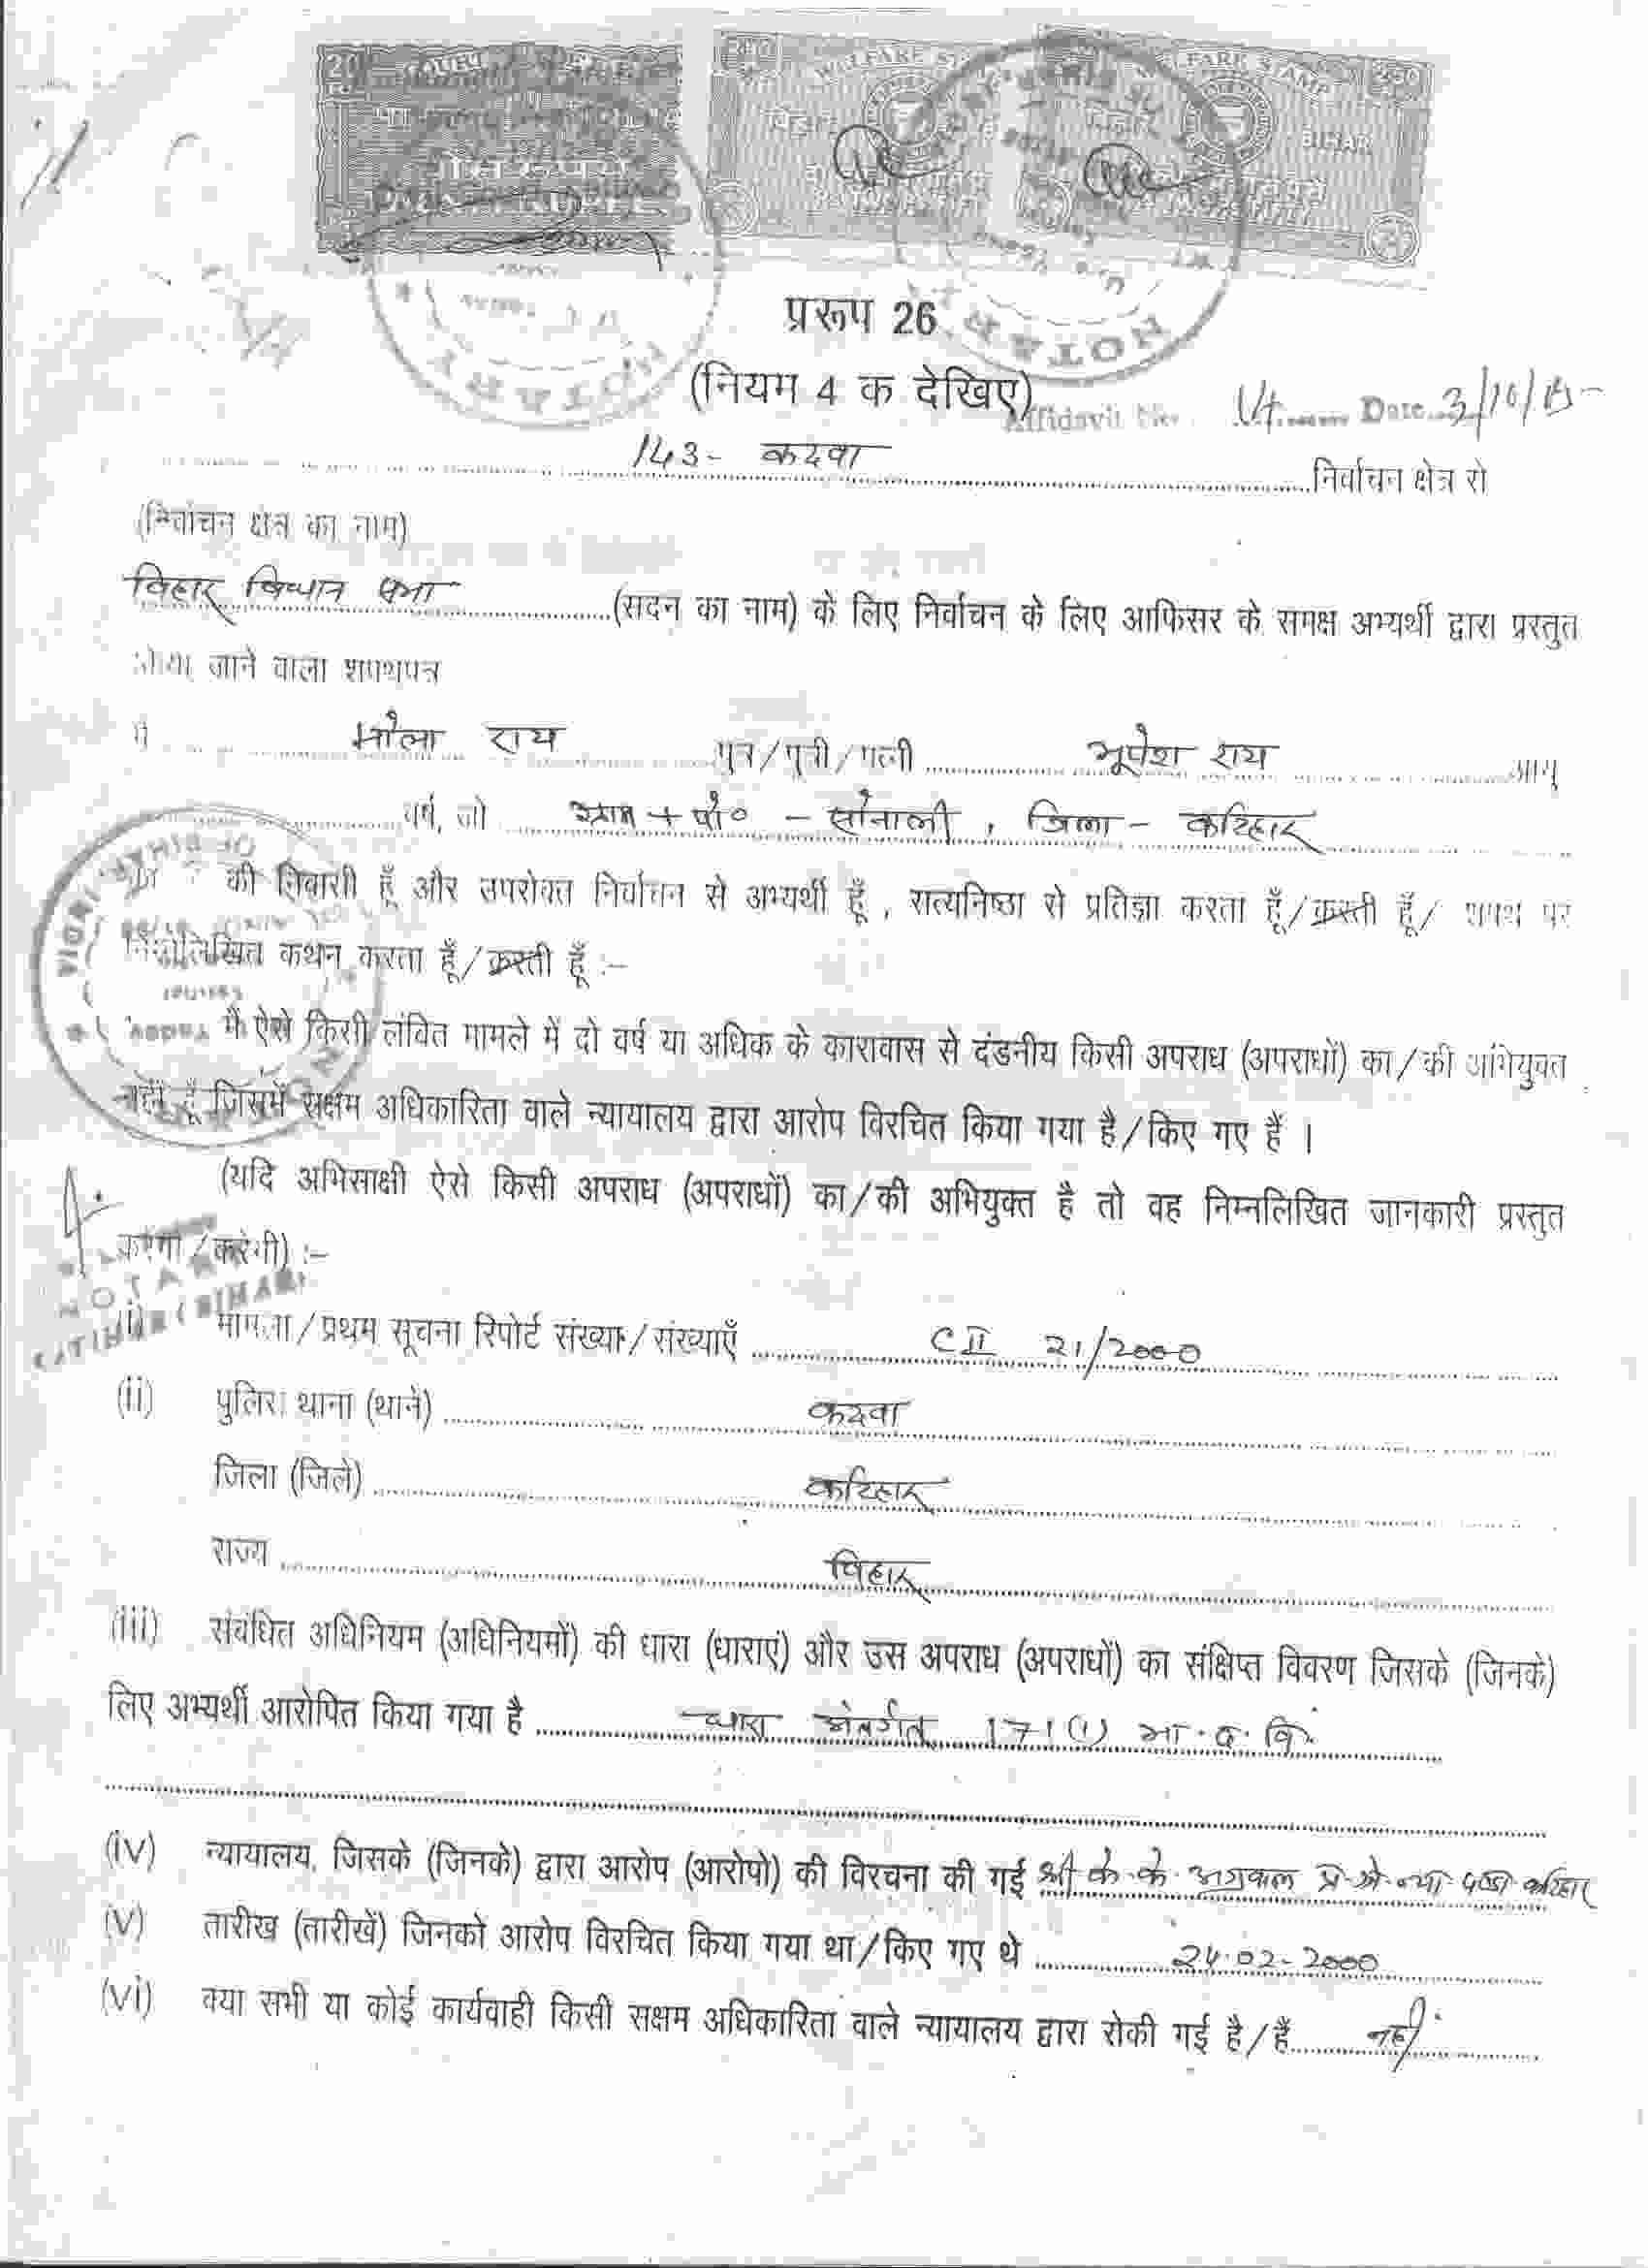 WELFARE STAMP
WELFARE STAMP
BIHAR
NOTARY
NOTARY
प्ररूप 26
(नियम 4 क देखिए)
Affidavit No. 14 Date 3/10/05
143- कदवा निर्वाचन क्षेत्र से
(निर्वाचन क्षेत्र का नाम)
बिहार विधान सभा (सदन का नाम) के लिए निर्वाचन के लिए आफिसर के समक्ष अभ्यर्थी द्वारा प्रस्तुत
किया जाने वाला शपथपत्र
मैं भोला राय पुत्र/पुत्री/पत्नी भूपेश राय आयु
वर्ष, जो ग्राम + पो० - सोनाली, जिला - कटिहार
की निवासी हूँ और उपरोक्त निर्वाचन से अभ्यर्थी हूँ, सत्यनिष्ठा से प्रतिज्ञा करता हूँ/करती हूँ/ शपथ पर
निम्नलिखित कथन करता हूँ/करती हूँ :-
मैं ऐसे किसी लंबित मामले में दो वर्ष या अधिक के कारावास से दंडनीय किसी अपराध (अपराधों) का/की अभियुक्त
नहीं हूँ जिसमें सक्षम अधिकारिता वाले न्यायालय द्वारा आरोप विरचित किया गया है/किए गए हैं ।
(यदि अभिसाक्षी ऐसे किसी अपराध (अपराधों) का/की अभियुक्त है तो वह निम्नलिखित जानकारी प्रस्तुत
करेगा/करेगी) :-
NOTARY
KATIHAR (BIHAR)
(i) मामला/प्रथम सूचना रिपोर्ट संख्या/संख्याएँ CII 21/2000
(ii) पुलिस थाना (थाने) कदवा
जिला (जिले) कटिहार
राज्य बिहार
(iii) संबंधित अधिनियम (अधिनियमों) की धारा (धाराएं) और उस अपराध (अपराधों) का संक्षिप्त विवरण जिसके (जिनके)
लिए अभ्यर्थी आरोपित किया गया है धारा अंतर्गत 171(1) भा.द.वि.
(iv) न्यायालय, जिसके (जिनके) द्वारा आरोप (आरोपो) की विरचना की गई श्री के.के. अग्रवाल प्र.श्रे. न्या. दण्डा. कटिहार
(v) तारीख (तारीखें) जिनको आरोप विरचित किया गया था/किए गए थे 24.02-2000
(vi) क्या सभी या कोई कार्यवाही किसी सक्षम अधिकारिता वाले न्यायालय द्वारा रोकी गई है/हैं नहीं